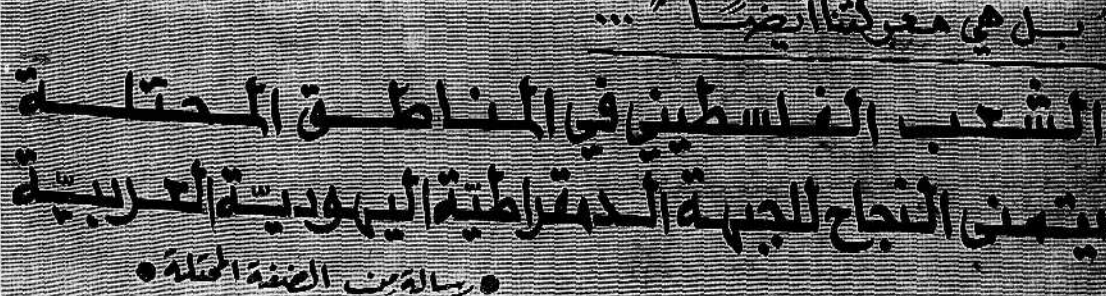 بل هي معركتنا أيضًا " ...
الشعب الفلسطيني في المناطق المحتلة
يتمنى النجاح للجبهة الدمقراطيّة اليهوديّة العربيّة
• رسالة من الضفة المحتلة •